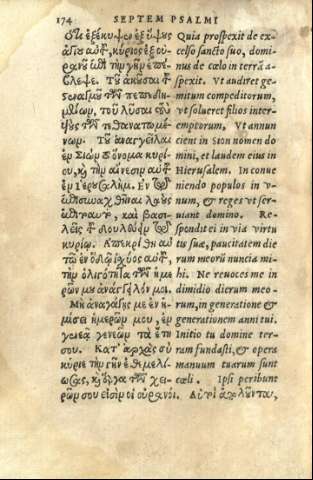 174 SEPTEM PSALMI
Ὅτι ἐξέκυψεν ἐξ ὕψους
ἁγίου αὐτοῦ, κύριος ἐξ οὐ-
ρανοῦ ἐπὶ τὴν γῆν ἐπέ-
βλεψε. Τοῦ ἀκοῦσαι τοῦ
στεναγμοῦ τῶν πεπεδη-
μένων, τοῦ λῦσαι τοὺς
υἱοὺς τῶν τεθανατωμέ-
νων. Τοῦ ἀναγγεῖλαι
ἐν Σιὼν τὸ ὄνομα κυρί-
ου, καὶ τὴν αἴνεσιν αὐτοῦ
ἐν Ἱερουσαλήμ. Ἐν τῷ
ἐπισυναχθῆναι λαοὺς
ἐπὶ τὸ αὐτό, καὶ βασι-
λεῖς τοῦ δουλεύειν τῷ
κυρίῳ. Ἀπεκρίθη αὐ-
τῷ ἐν ὁδῷ ἰσχύος αὐτοῦ,
τὴν ὀλιγότητα τῶν ἡμε-
ρῶν μου ἀνάγγειλόν μοι.
Μὴ ἀναγάγῃς με ἐν ἡ-
μίσει ἡμερῶν μου, ἐν
γενεᾷ γενεῶν τὰ ἔτη
σου. Κατ' ἀρχὰς σὺ
κύριε τὴν γῆν ἐθεμελί-
ωσας, καὶ ἔργα τῶν χει-
ρῶν σου εἰσὶν οἱ οὐρανοί.
Quia prospexit de ex-
celso sancto suo, domi-
nus de cælo in terrā a-
spexit. Vt audiret ge-
mitum compeditorum,
vt solueret filios inter-
emptorum, Vt annun
cient in Sion nomen do
mini, et laudem eius in
Hierusalem. In conue
niendo populos in v-
num, & reges vt ser-
uiant domino. Re-
spondit ei in via virtu
tu sua, paucitatem die
rum meorū nuncia mi-
hi. Ne reuoces me in
dimidio dierum meo-
rum, in generatione &
generationem anni tui.
Initio tu domine ter-
ram fundasti, & opera
manuum tuarum sunt
cæli. Ipsi peribunt
Αὐτοὶ ἀπολοῦνται,